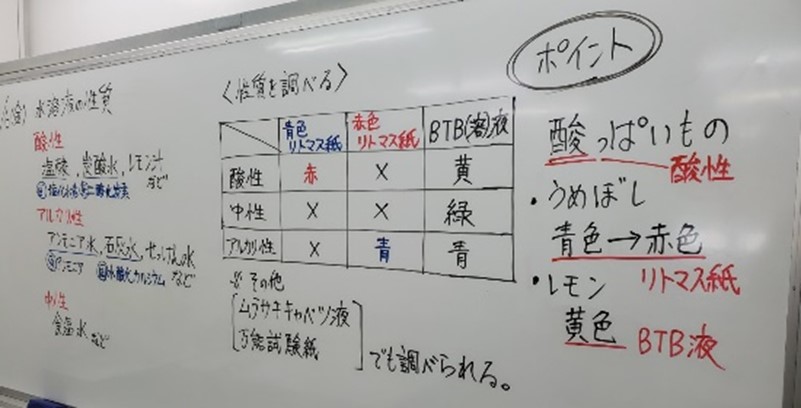 水溶液の性質
酸性
塩酸、炭酸水、レモン汁
など
塩化水素 二酸化炭素
アルカリ性
アンモニア水、石灰水、せっけん水
アンモニア 水酸化カルシウム など
中性
食塩水 など
〈性質を調べる〉
青色リトマス紙 赤色リトマス紙 BTB(溶)液
酸性 赤 × 黄
中性 × × 緑
アルカリ性 × 青 青
※その他
ムラサキキャベツ液
万能試験紙
でも調べられる。
ポイント
酸っぱいもの
酸性
・うめぼし
青色→赤色
リトマス紙
・レモン
黄色 BTB液